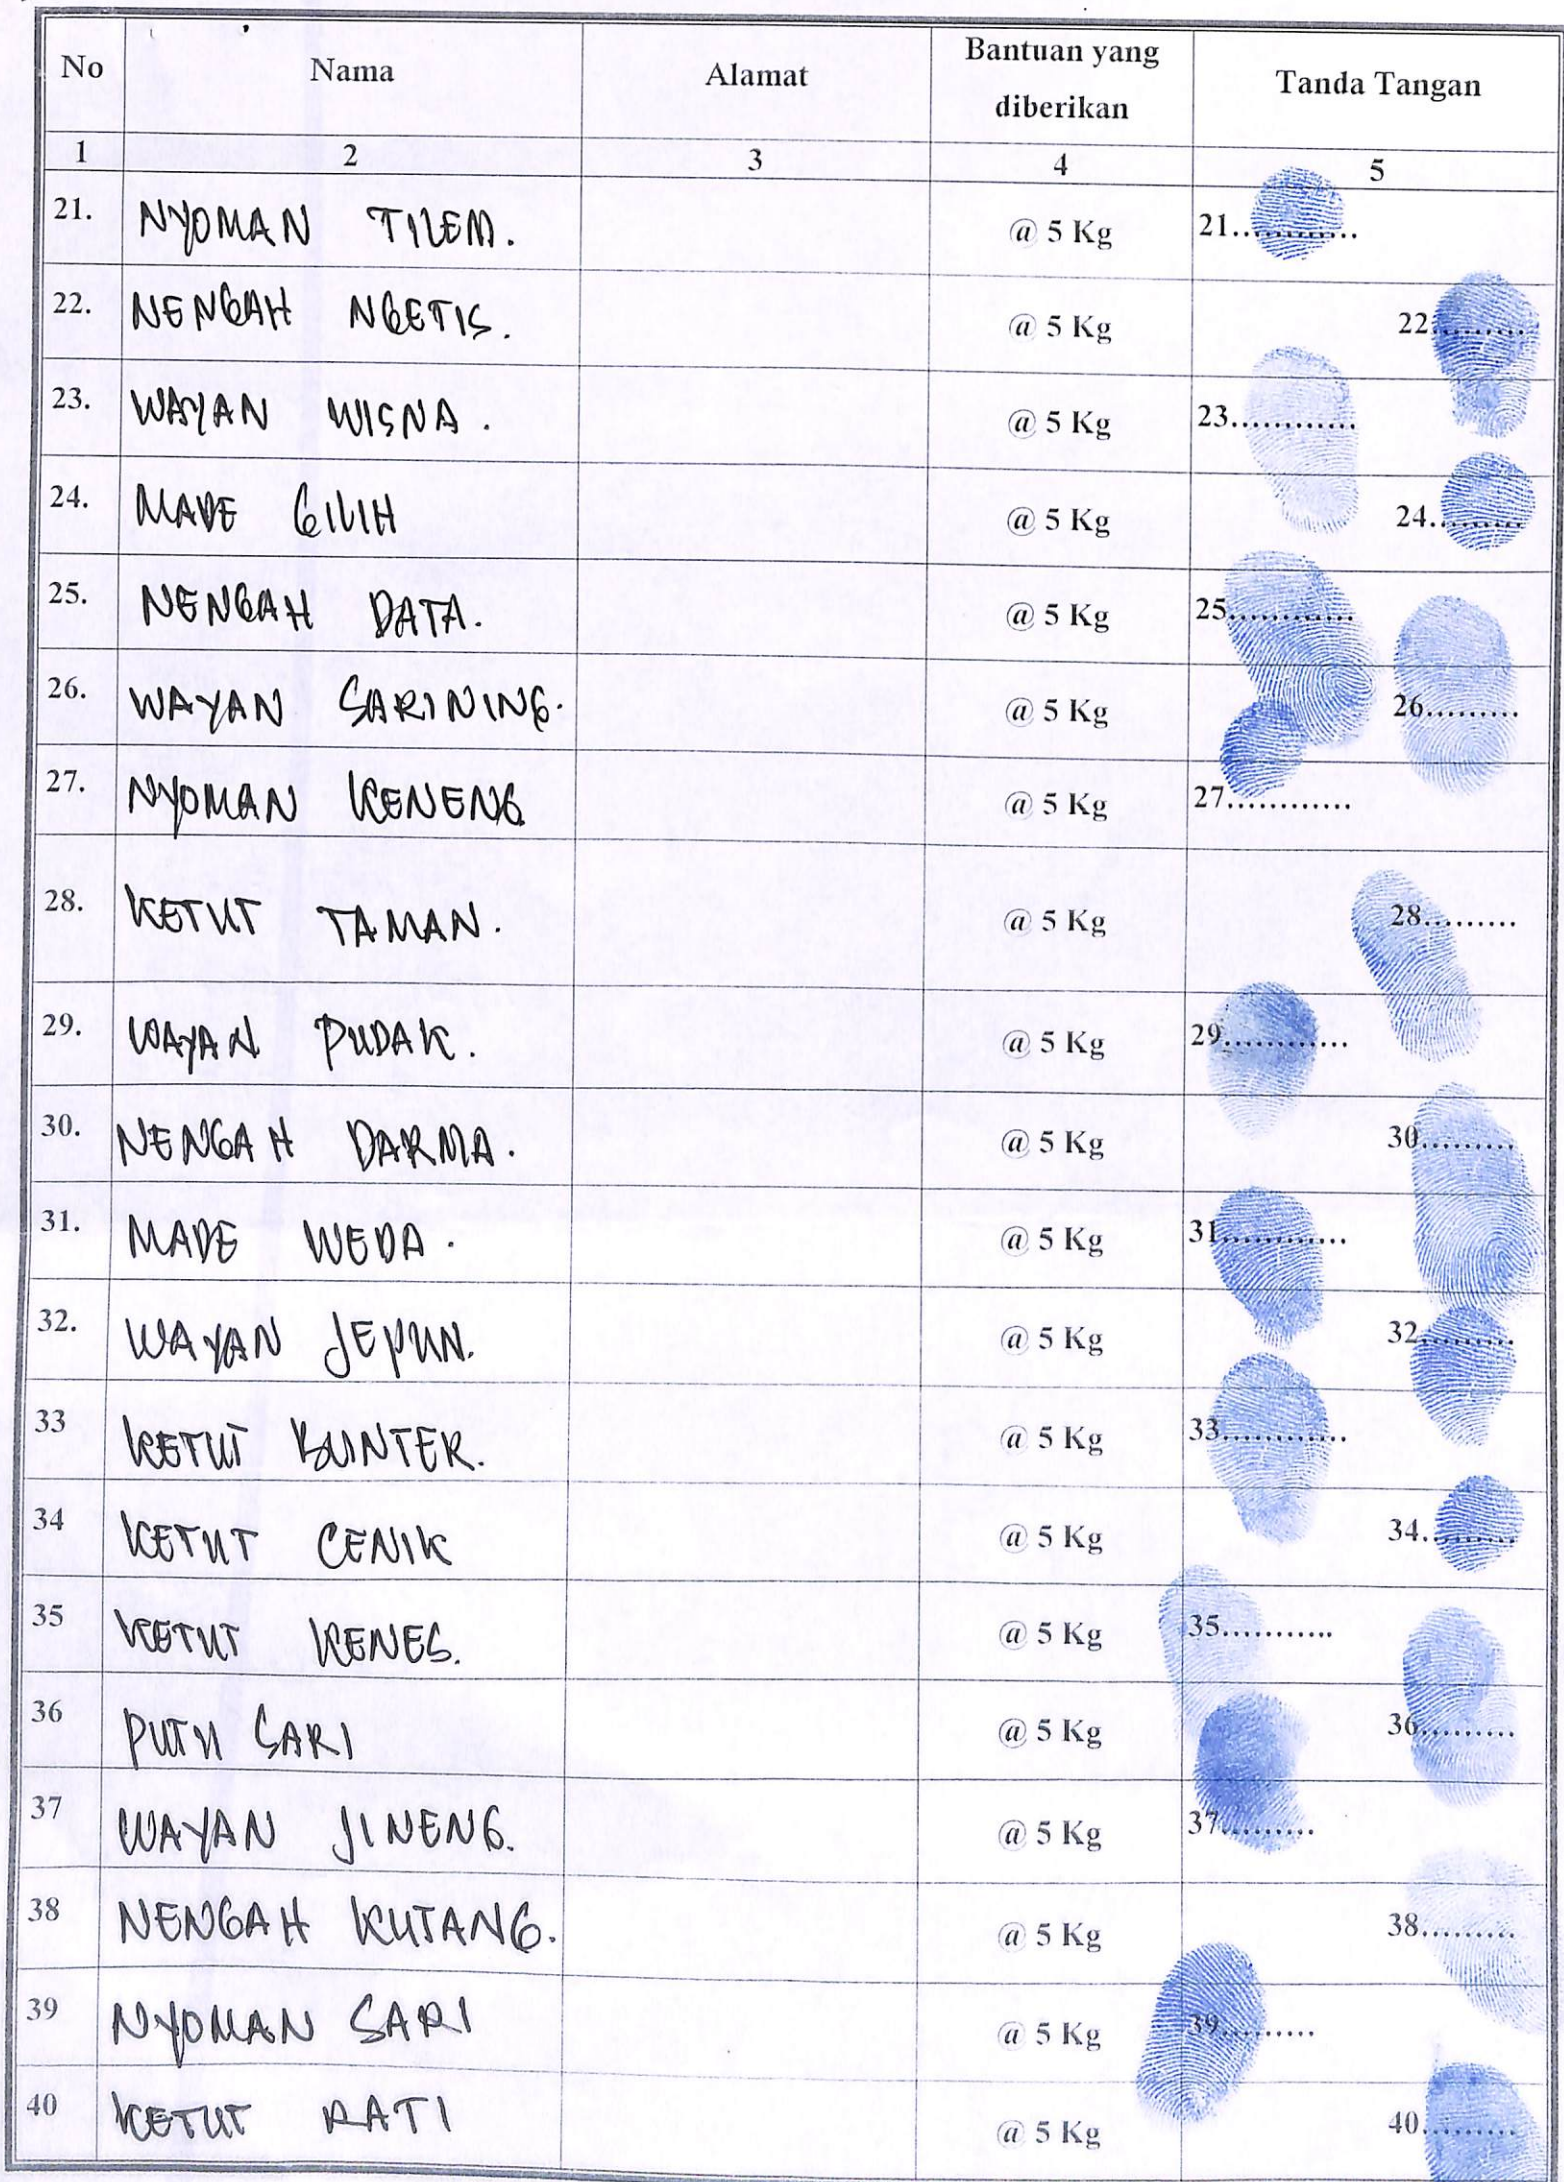 No Nama Alamat Bantuan yang diberikan Tanda Tangan
1 2 3 4 5
21. NYOMAN TILEM. @ 5 Kg 21............
22. NENGAH NGETIS. @ 5 Kg 22.........
23. WAYAN WISNA. @ 5 Kg 23............
24. MADE GILIH @ 5 Kg 24.........
25. NENGAH DATA. @ 5 Kg 25............
26. WAYAN SARINING. @ 5 Kg 26.........
27. NYOMAN KENENG @ 5 Kg 27............
28. KETUT TAMAN. @ 5 Kg 28.........
29. WAYAN PUDAK. @ 5 Kg 29............
30. NENGAH DARMA. @ 5 Kg 30.........
31. MADE WEDA. @ 5 Kg 31............
32. WAYAN JEPUN. @ 5 Kg 32.........
33 KETUT BUINTER. @ 5 Kg 33............
34 KETUT CENIK @ 5 Kg 34.........
35 KETUT KENES. @ 5 Kg 35...........
36 PUTU SARI @ 5 Kg 36.........
37 WAYAN JINENG. @ 5 Kg 37.........
38 NENGAH KUTANG. @ 5 Kg 38.........
39 NYOMAN SARI @ 5 Kg 39.........
40 KETUT RATI @ 5 Kg 40.........